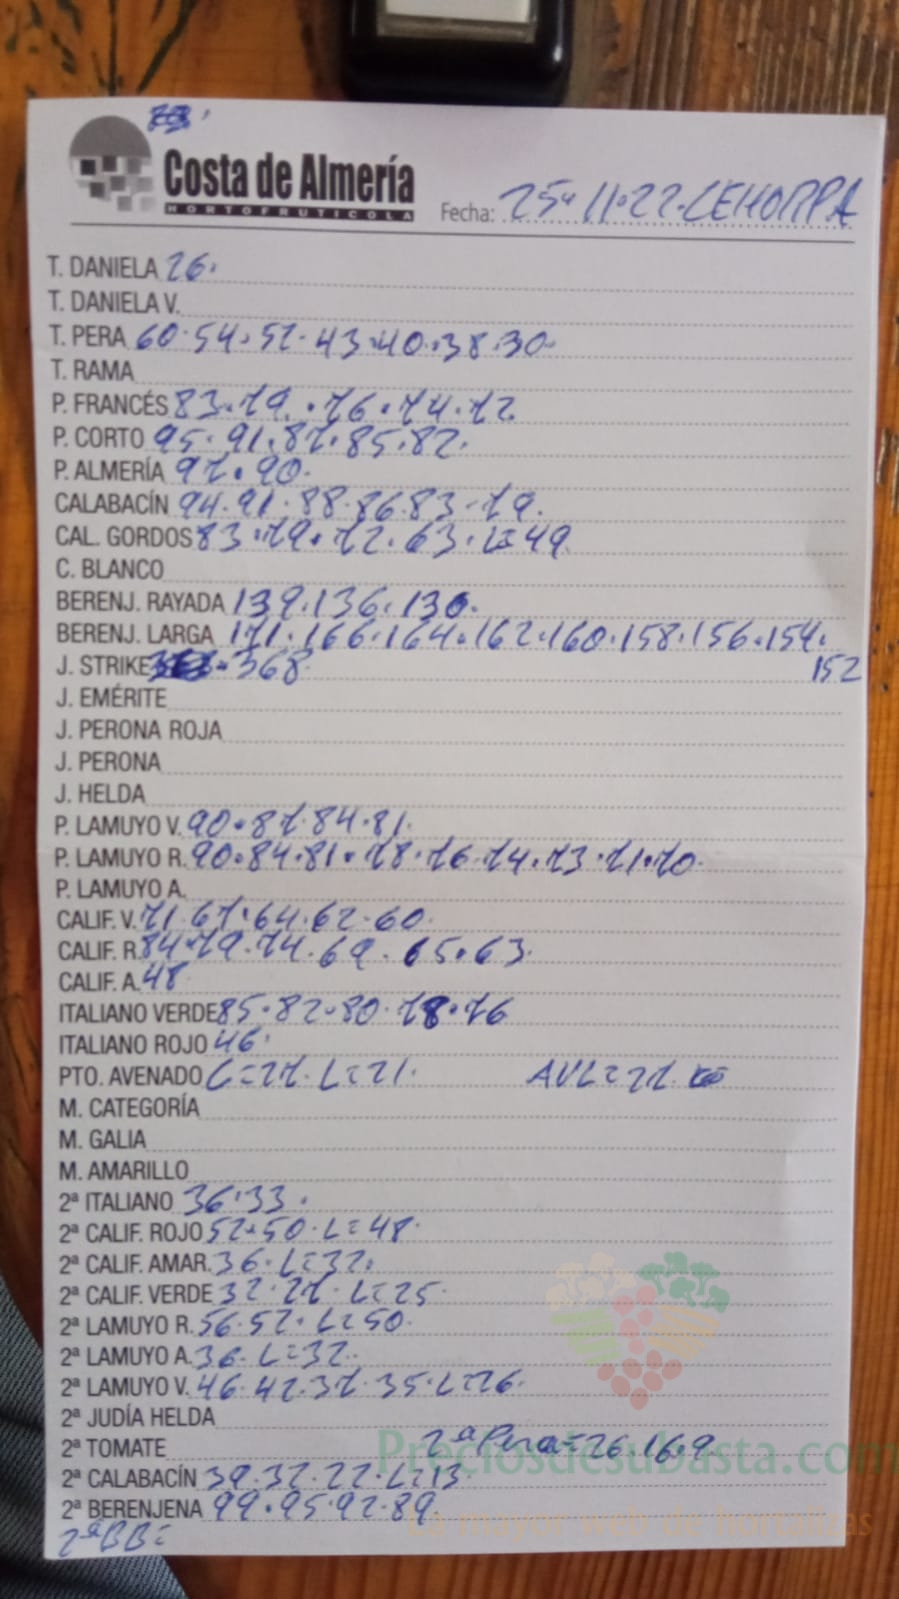 Costa de Almería
HORTOFRUTICOLA
Fecha: 25-11-22-CEHORPA
T. DANIELA 26.
T. DANIELA V.
T. PERA 60.54.52.43.40.38.30
T. RAMA
P. FRANCÉS 83.79.76.74.72
P. CORTO 95.91.87.85.82.
P. ALMERÍA 97.90.
CALABACÍN 94.91.88.86.83.79.
CAL. GORDOS 83.79.72.63.L=49
C. BLANCO
BERENJ. RAYADA 139.136.130.
BERENJ. LARGA 171.166.164.162.160.158.156.154.
J. STRIKE 368 152
J. EMÉRITE
J. PERONA ROJA
J. PERONA
J. HELDA
P. LAMUYO V. 90.87.84.81.
P. LAMUYO R. 90.84.81.78.76.74.73.71.70.
P. LAMUYO A.
CALIF. V. 71.67.64.62.60.
CALIF. R. 84.79.74.69.65.63.
CALIF. A. 48
ITALIANO VERDE 85.82.80.78.76
ITALIANO ROJO 46.
PTO. AVENADO C=27. L=21. AVL=21.
M. CATEGORÍA
M. GALIA
M. AMARILLO
2ª ITALIANO 36.33.
2ª CALIF. ROJO 52.50.L=48.
2ª CALIF. AMAR. 36.L=32.
2ª CALIF. VERDE 32.27.L=25.
2ª LAMUYO R. 56.52.L=50.
2ª LAMUYO A. 36.L=32.
2ª LAMUYO V. 46.42.37.35.L=26.
2ª JUDÍA HELDA
2ª TOMATE 2ª Pera=26.16.9
Preciosdesubasta.com
2ª CALABACÍN 39.32.22.L=13
2ª BERENJENA 99.95.92.89.
La mayor web de hortalizas
2ª BB=